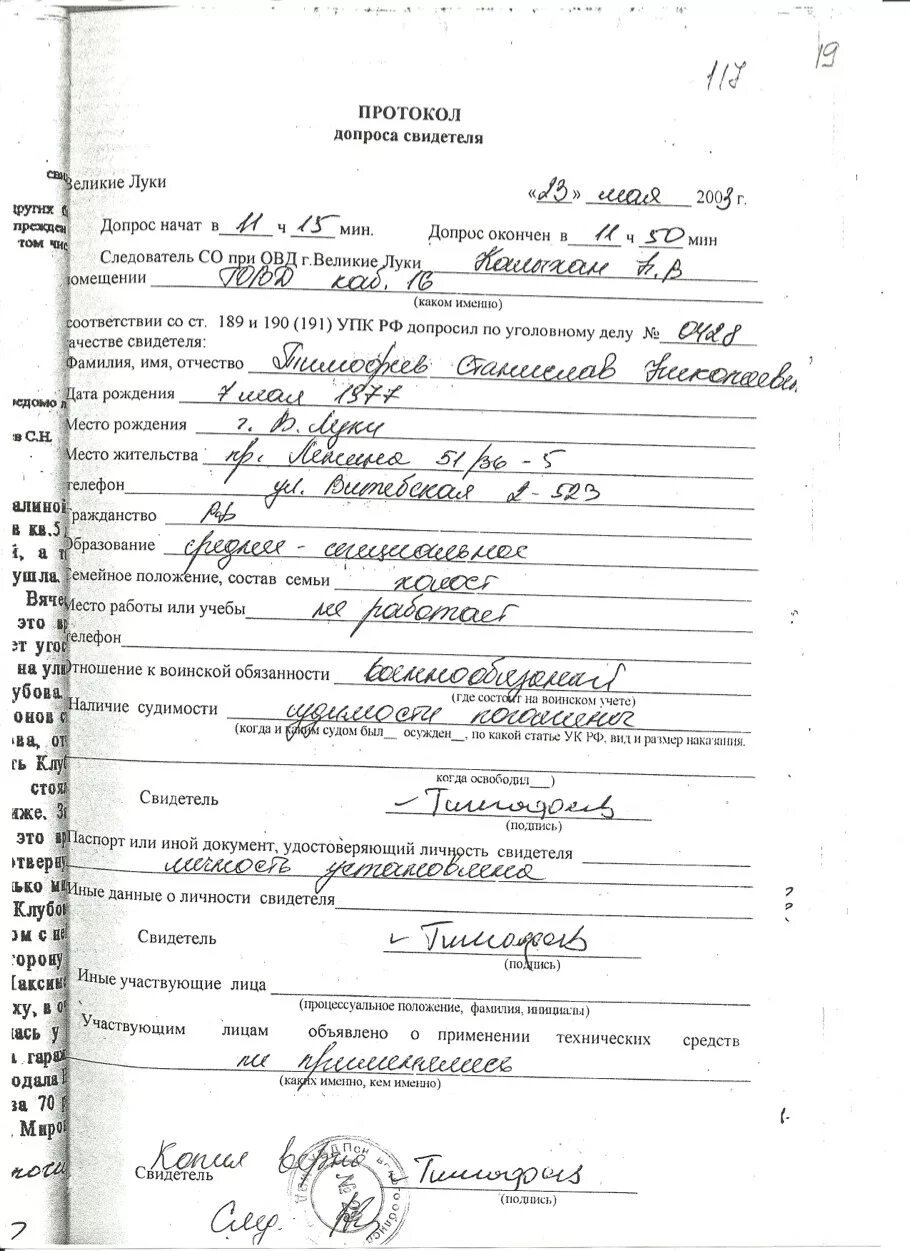 19
117
ПРОТОКОЛ
допроса свидетеля
Великие Луки
«23» мая 2003 г.
Допрос начат в 11 ч 15 мин. Допрос окончен в 11 ч 50 мин
Следователь СО при ОВД г.Великие Луки Калыхан Н.В
помещении ГОВД каб. 16
(каком именно)
соответствии со ст. 189 и 190 (191) УПК РФ допросил по уголовному делу № 0428
качестве свидетеля:
Фамилия, имя, отчество Тимофеев Станислав Николаевич
Дата рождения 7 мая 1977
Место рождения г. В. Луки
Место жительства пр. Ленина 51/36 - 5
телефон ул. Витебская 2-523
Гражданство РФ
Образование среднее - специальное
Семейное положение, состав семьи холост
Место работы или учебы не работает
телефон
Отношение к воинской обязанности военнообязанный
(где состоит на воинском учете)
Наличие судимости судимости погашены
(когда и каким судом был__ осужден__, по какой статье УК РФ, вид и размер наказания.
когда освободил__)
Свидетель Тимофеев
(подпись)
Паспорт или иной документ, удостоверяющий личность свидетеля
личность установлена
Иные данные о личности свидетеля
Свидетель Тимофеев
(подпись)
Иные участвующие лица
(процессуальное положение, фамилия, инициалы)
Участвующим лицам объявлено о применении технических средств
не применялись
(каких именно, кем именно)
Копия верна
Свидетель Тимофеев
(подпись)
След.
других
том чис
в С.Н.
в кв.5
, а т
ушла.
Вяче
это вр
ет угос
на ули
убова.
онов с
ва, от
ть Клу
стоя
иже. З
это вр
Клубо
ом с не
орону
Максим
ху, в о
ась у
гараж
одала
за 70
Миро